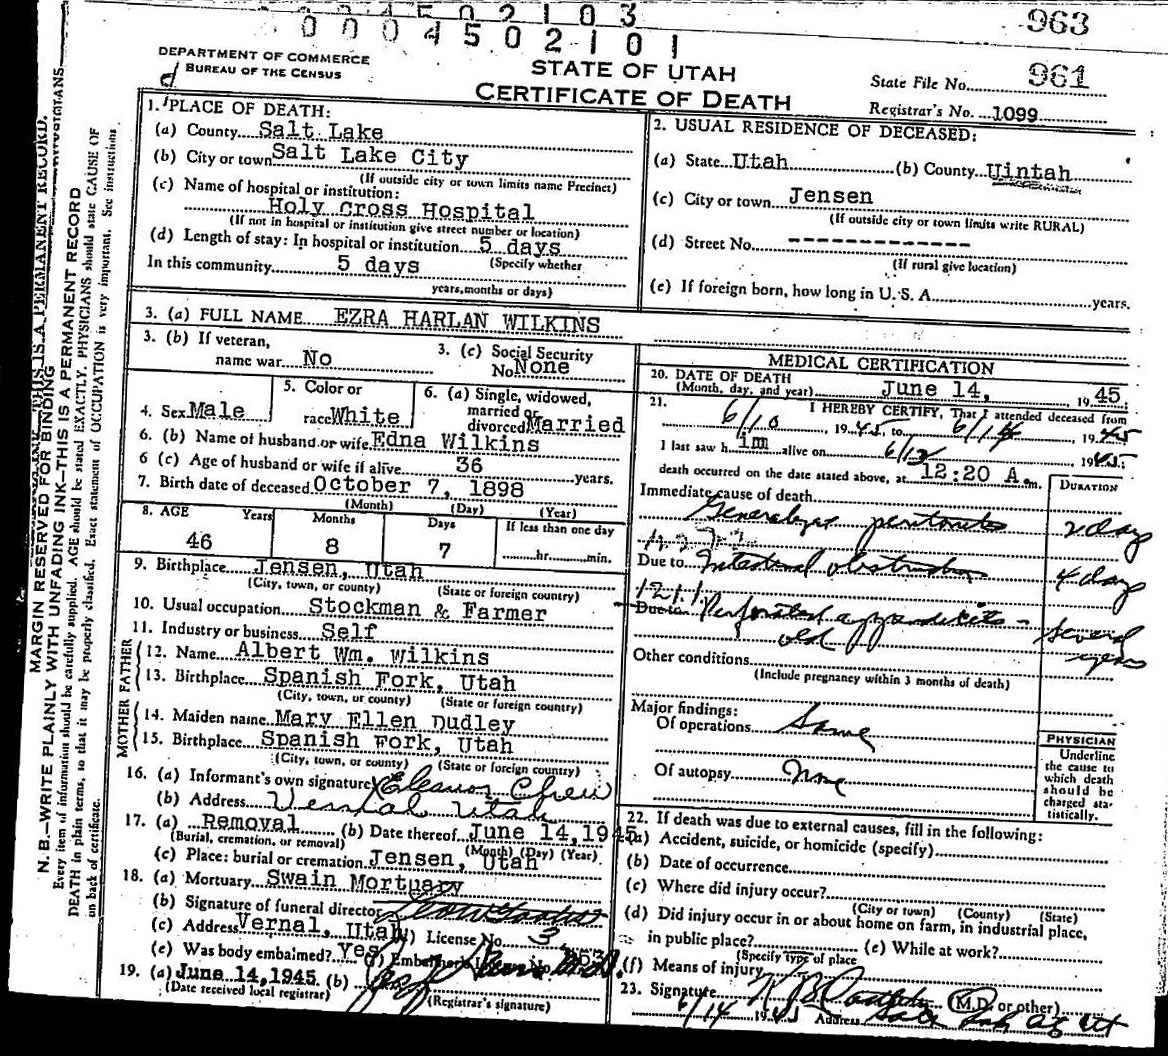 0004502103
963
0004502101
DEPARTMENT OF COMMERCE
BUREAU OF THE CENSUS
d
STATE OF UTAH
CERTIFICATE OF DEATH
State File No. 961
Registrar's No. 1099
1. PLACE OF DEATH:
(a) County Salt Lake
(b) City or town Salt Lake City
(If outside city or town limits name Precinct)
(c) Name of hospital or institution:
Holy Cross Hospital
(If not in hospital or institution give street number or location)
(d) Length of stay: In hospital or institution 5 days
(Specify whether
In this community 5 days
years, months or days)
2. USUAL RESIDENCE OF DECEASED:
(a) State Utah (b) County Uintah
(c) City or town Jensen
(If outside city or town limits write RURAL)
(d) Street No. --------------
(If rural give location)
(e) If foreign born, how long in U. S. A. years.
3. (a) FULL NAME EZRA HARLAN WILKINS
3. (b) If veteran,
name war No
3. (c) Social Security
No. None
4. Sex Male
5. Color or
race White
6. (a) Single, widowed,
married or
divorced Married
6. (b) Name of husband or wife Edna Wilkins
6 (c) Age of husband or wife if alive 36 years.
7. Birth date of deceased October 7, 1898
(Month) (Day) (Year)
8. AGE Years Months Days If less than one day
46 8 7 hr. min.
9. Birthplace Jensen, Utah
(City, town, or county) (State or foreign country)
10. Usual occupation Stockman & Farmer
11. Industry or business Self
FATHER
12. Name Albert Wm. Wilkins
13. Birthplace Spanish Fork, Utah
(City, town, or county) (State or foreign country)
MOTHER
14. Maiden name Mary Ellen Dudley
15. Birthplace Spanish Fork, Utah
(City, town, or county) (State or foreign country)
16. (a) Informant's own signature Eleanor Chew
(b) Address Vernal Utah
17. (a) Removal (b) Date thereof June 14, 1945
(Burial, cremation, or removal) (Month) (Day) (Year)
(c) Place: burial or cremation Jensen, Utah
18. (a) Mortuary Swain Mortuary
(b) Signature of funeral director
(c) Address Vernal, Utah License No.
(e) Was body embalmed? Yes
19. (a) June 14, 1945 (b)
(Date received local registrar) (Registrar's signature)
MEDICAL CERTIFICATION
20. DATE OF DEATH
(Month, day, and year) June 14, 1945
21. I HEREBY CERTIFY, That I attended deceased from
6/10 1945 to 6/14, 1945
I last saw h im alive on 6/13 1945;
death occurred on the date stated above, at 12:20 A.m.
DURATION
Immediate cause of death
Generalized peritonitis 2 day
Due to Intestinal obstruction 4 day
121.1
Due to Perforated appendicitis - several
old years
Other conditions
(Include pregnancy within 3 months of death)
Major findings:
Of operations Same
Of autopsy None
PHYSICIAN
Underline
the cause to
which death
should be
charged sta-
tistically.
22. If death was due to external causes, fill in the following:
(a) Accident, suicide, or homicide (specify)
(b) Date of occurrence
(c) Where did injury occur?
(City or town) (County) (State)
(d) Did injury occur in or about home on farm, in industrial place,
in public place? (e) While at work?
(Specify type of place
(f) Means of injury
23. Signature (M.D. or other)
6/14 1945 Address
MARGIN RESERVED FOR BINDING
N. B.—WRITE PLAINLY WITH UNFADING INK—THIS IS A PERMANENT RECORD
Every item of information should be carefully supplied. AGE should be stated EXACTLY. PHYSICIANS should state CAUSE OF
DEATH in plain terms, so that it may be properly classified. Exact statement of OCCUPATION is very important. See instructions
on back of certificate.